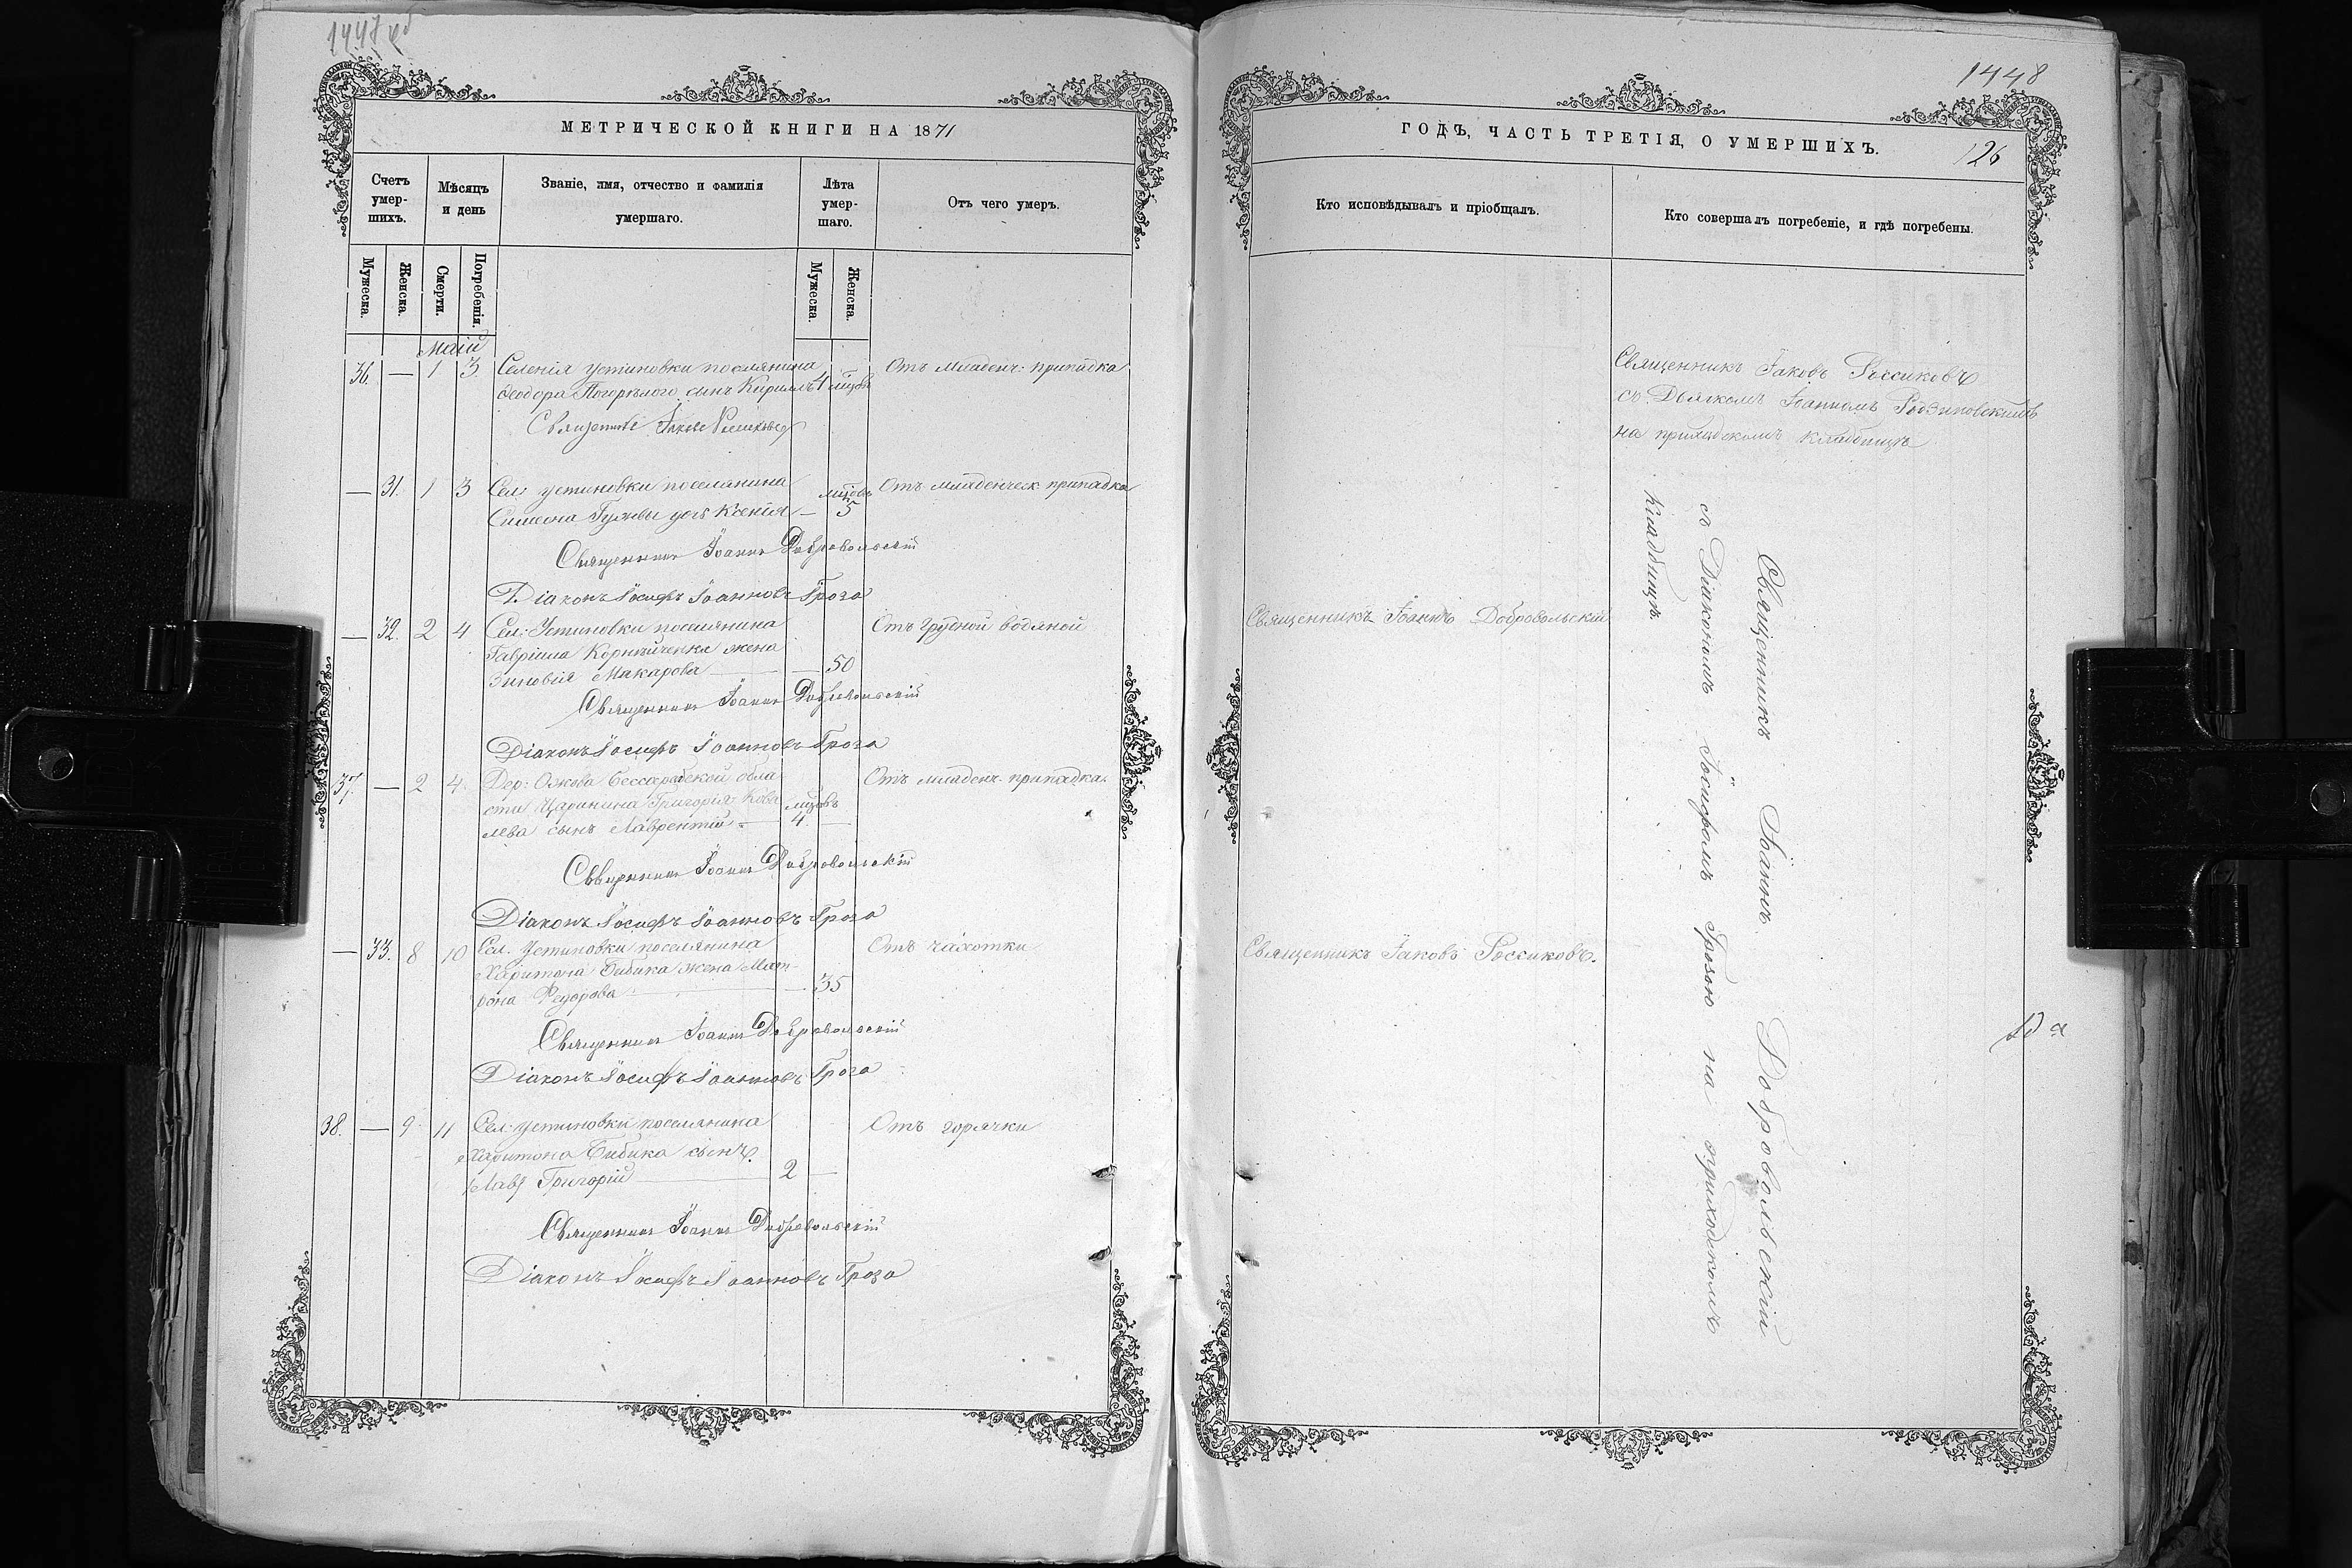 1447 об
МЕТРИЧЕСКОЙ КНИГИ НА 1871
Счетъ умер-шихъ.
Мѣсяцъ и день
Званіе, имя, отчество и фамилія умершаго.
Лѣта умер-шаго.
Отъ чего умеръ.
Мужеска.
Женска.
Смерти.
Погребенія.
Мужеска.
Женска.
Маій
36. — 1 3 Селенія Устиновки поселянина Отъ младенч. припадка
Ѳеодора Погорѣлого сынъ Кириллъ 4 мцовъ
Священникъ Іаковъ Россиковъ
— 31. 1 3 Сел: Устиновки поселянина мцовъ Отъ младенческ. припадка
Симеона Гужвы дочь Ксенія — 5
Священникъ Іоаннъ Добровольскій
Діаконъ Іосифъ Іоанновъ Гроза
— 32. 2 4 Сел: Устиновки поселянина Отъ грудной водяной
Гавріила Корнѣйченка жена
Зиновія Макарова — 50
Священникъ Іоаннъ Добровольскій
Діаконъ Іосифъ Іоанновъ Гроза
37. — 2 4. Дер: Ожова Бессарабской обла-
Отъ младенч. припадка.
сти Царинина Григорія Кова мцовъ
лева сынъ Лаврентій — 4. —
Священникъ Іоаннъ Добровольскій
Діаконъ Іосифъ Іоанновъ Гроза
— 33. 8 10 Сел. Устиновки поселянина Отъ чахотки
Харитона Бибика жена Мат-
рона Федорова — 35
Священникъ Іоаннъ Добровольскій
Діаконъ Іосифъ Іоанновъ Гроза
38. — 9 11 Сел: Устиновки поселянина Отъ горячки
Харитона Бибика сынъ
Григорій 2 —
Священникъ Іоаннъ Добровольскій
Діаконъ Іосифъ Іоанновъ Гроза
1448
ГОДЪ, ЧАСТЬ ТРЕТІЯ, О УМЕРШИХЪ.
126
Кто исповѣдывалъ и пріобщалъ.
Кто совершалъ погребеніе, и гдѣ погребены.
Священникъ Іаковъ Россиковъ
съ Дьячкомъ Іоанномъ Родзиновскимъ
на приходскомъ кладбищѣ
Священникъ Іоаннъ Добровольскій
Священникъ Іаковъ Россиковъ.
Священникъ Іоаннъ Добровольскій
съ Діакономъ Іосифомъ Грозою на приходскомъ
кладбищѣ.